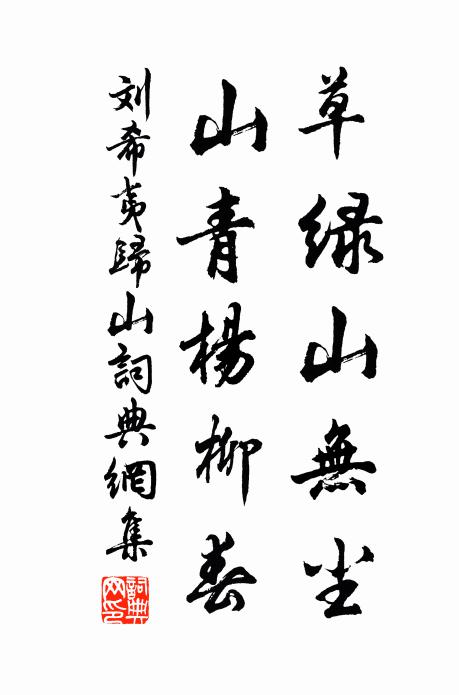 草緑山無尘
山青楊柳春
刘希夷歸山詞典網集
詞典網印